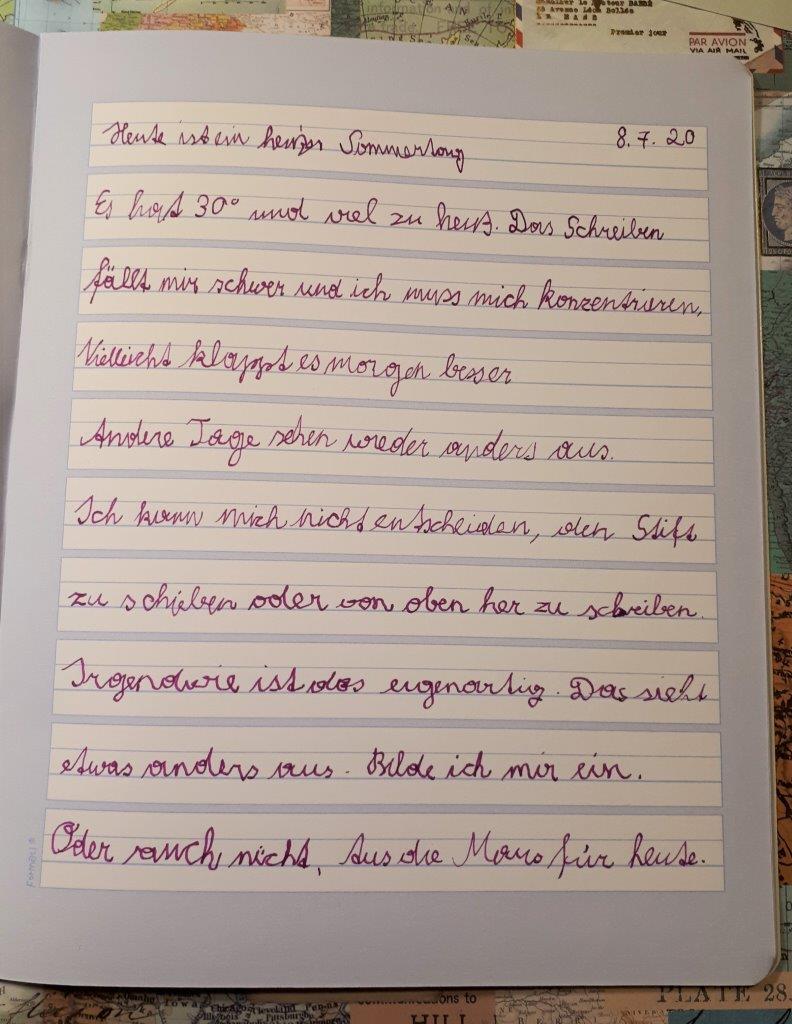 information
Premier jour
PAR AVION
VIA AIR MAIL
Heute ist ein heißer Sommertag 8.7.20
Es hat 30° und viel zu heiß. Das Schreiben
fällt mir schwer und ich muss mich konzentrieren,
Vielleicht klappt es morgen besser
Andere Tage sehen wieder anders aus.
Ich kann mich nicht entscheiden, den Stift
zu schieben oder von oben her zu schreiben.
Irgendwie ist das eigenartig. Das sieht
etwas anders aus. Bilde ich mir ein.
Oder auch nicht. Aus die Maus für heute.
Iowa
Cleveland
communications to
HILL
PLATE 28